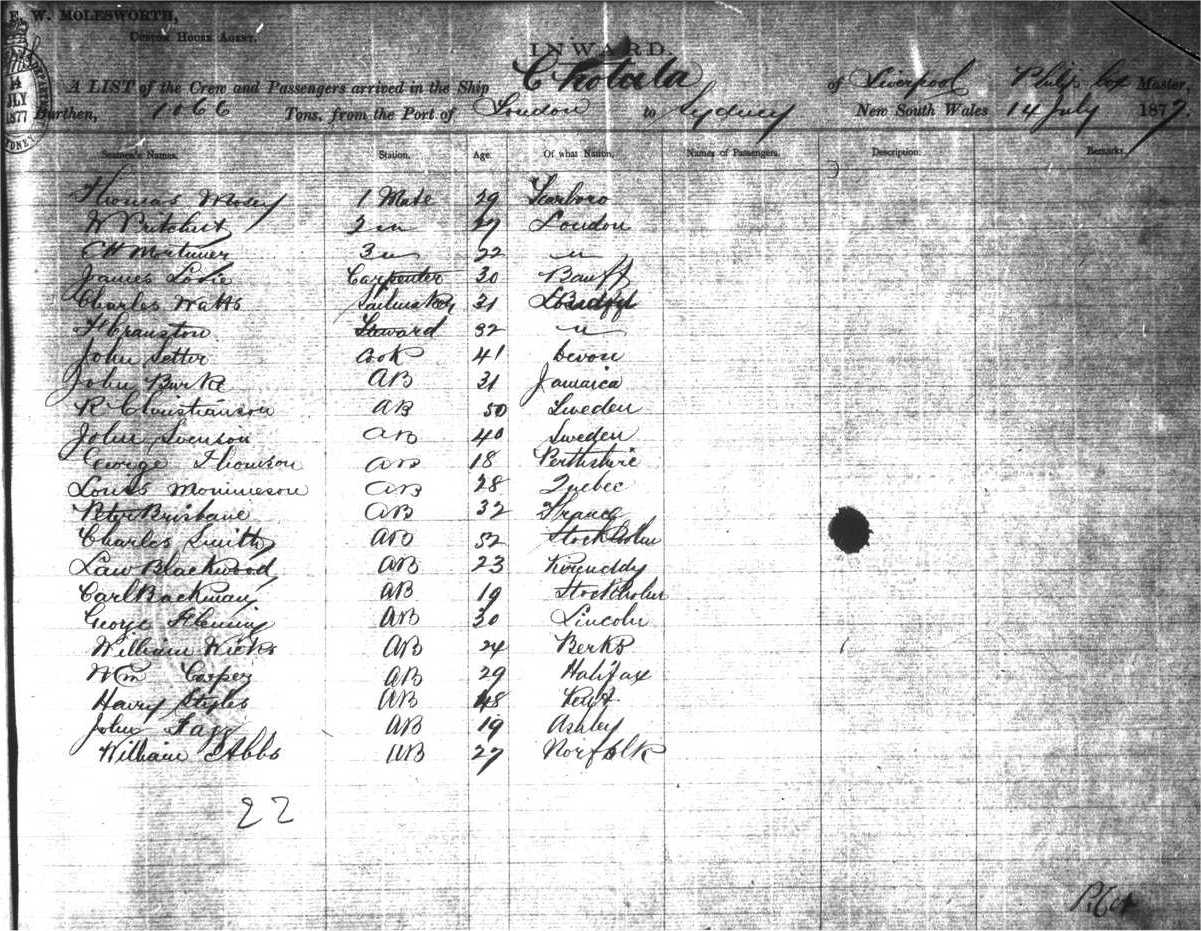 E. W. MOLESWORTH,
CUSTOM HOUSE AGENT.
14 JULY 1877
INWARD.
A LIST of the Crew and Passengers arrived in the Ship Chotala of Liverpool Philip Cox Master,
Burthen, 1066 Tons, from the Port of London to Sydney New South Wales 14 July 1877.
Seamen's Names. Station. Age. Of what Nation. Names of Passengers. Description. Remarks.
Thomas 1 Mate 29 Scarboro
W Pritchet 2 " 27 London
CH Mortimer 3 " 22 "
James Carpenter 30 Banff
Charles Watts Sailmaker 31
Cranston Steward 32 "
John Setter Cook 41 Devon
John Burke AB 31 Jamaica
R Christianson AB 50 Sweden
John Svenson AB 40 Sweden
George Thomson AB 18 Perthshire
Louis AB 28 Quebec
Peter Brisbane AB 32 France
Charles Smith AB 52 Stockholm
Law Blackwood AB 23
Carl Backman AB 19 Stockholm
George Fleming AB 30 Lincoln
William Hicks AB 24 Berks
Wm Cooper AB 29 Halifax
Harry Styles AB 48 Kent
John Fagg AB 19 Ashley
William Abbs AB 27 Norfolk
22
P. Cox